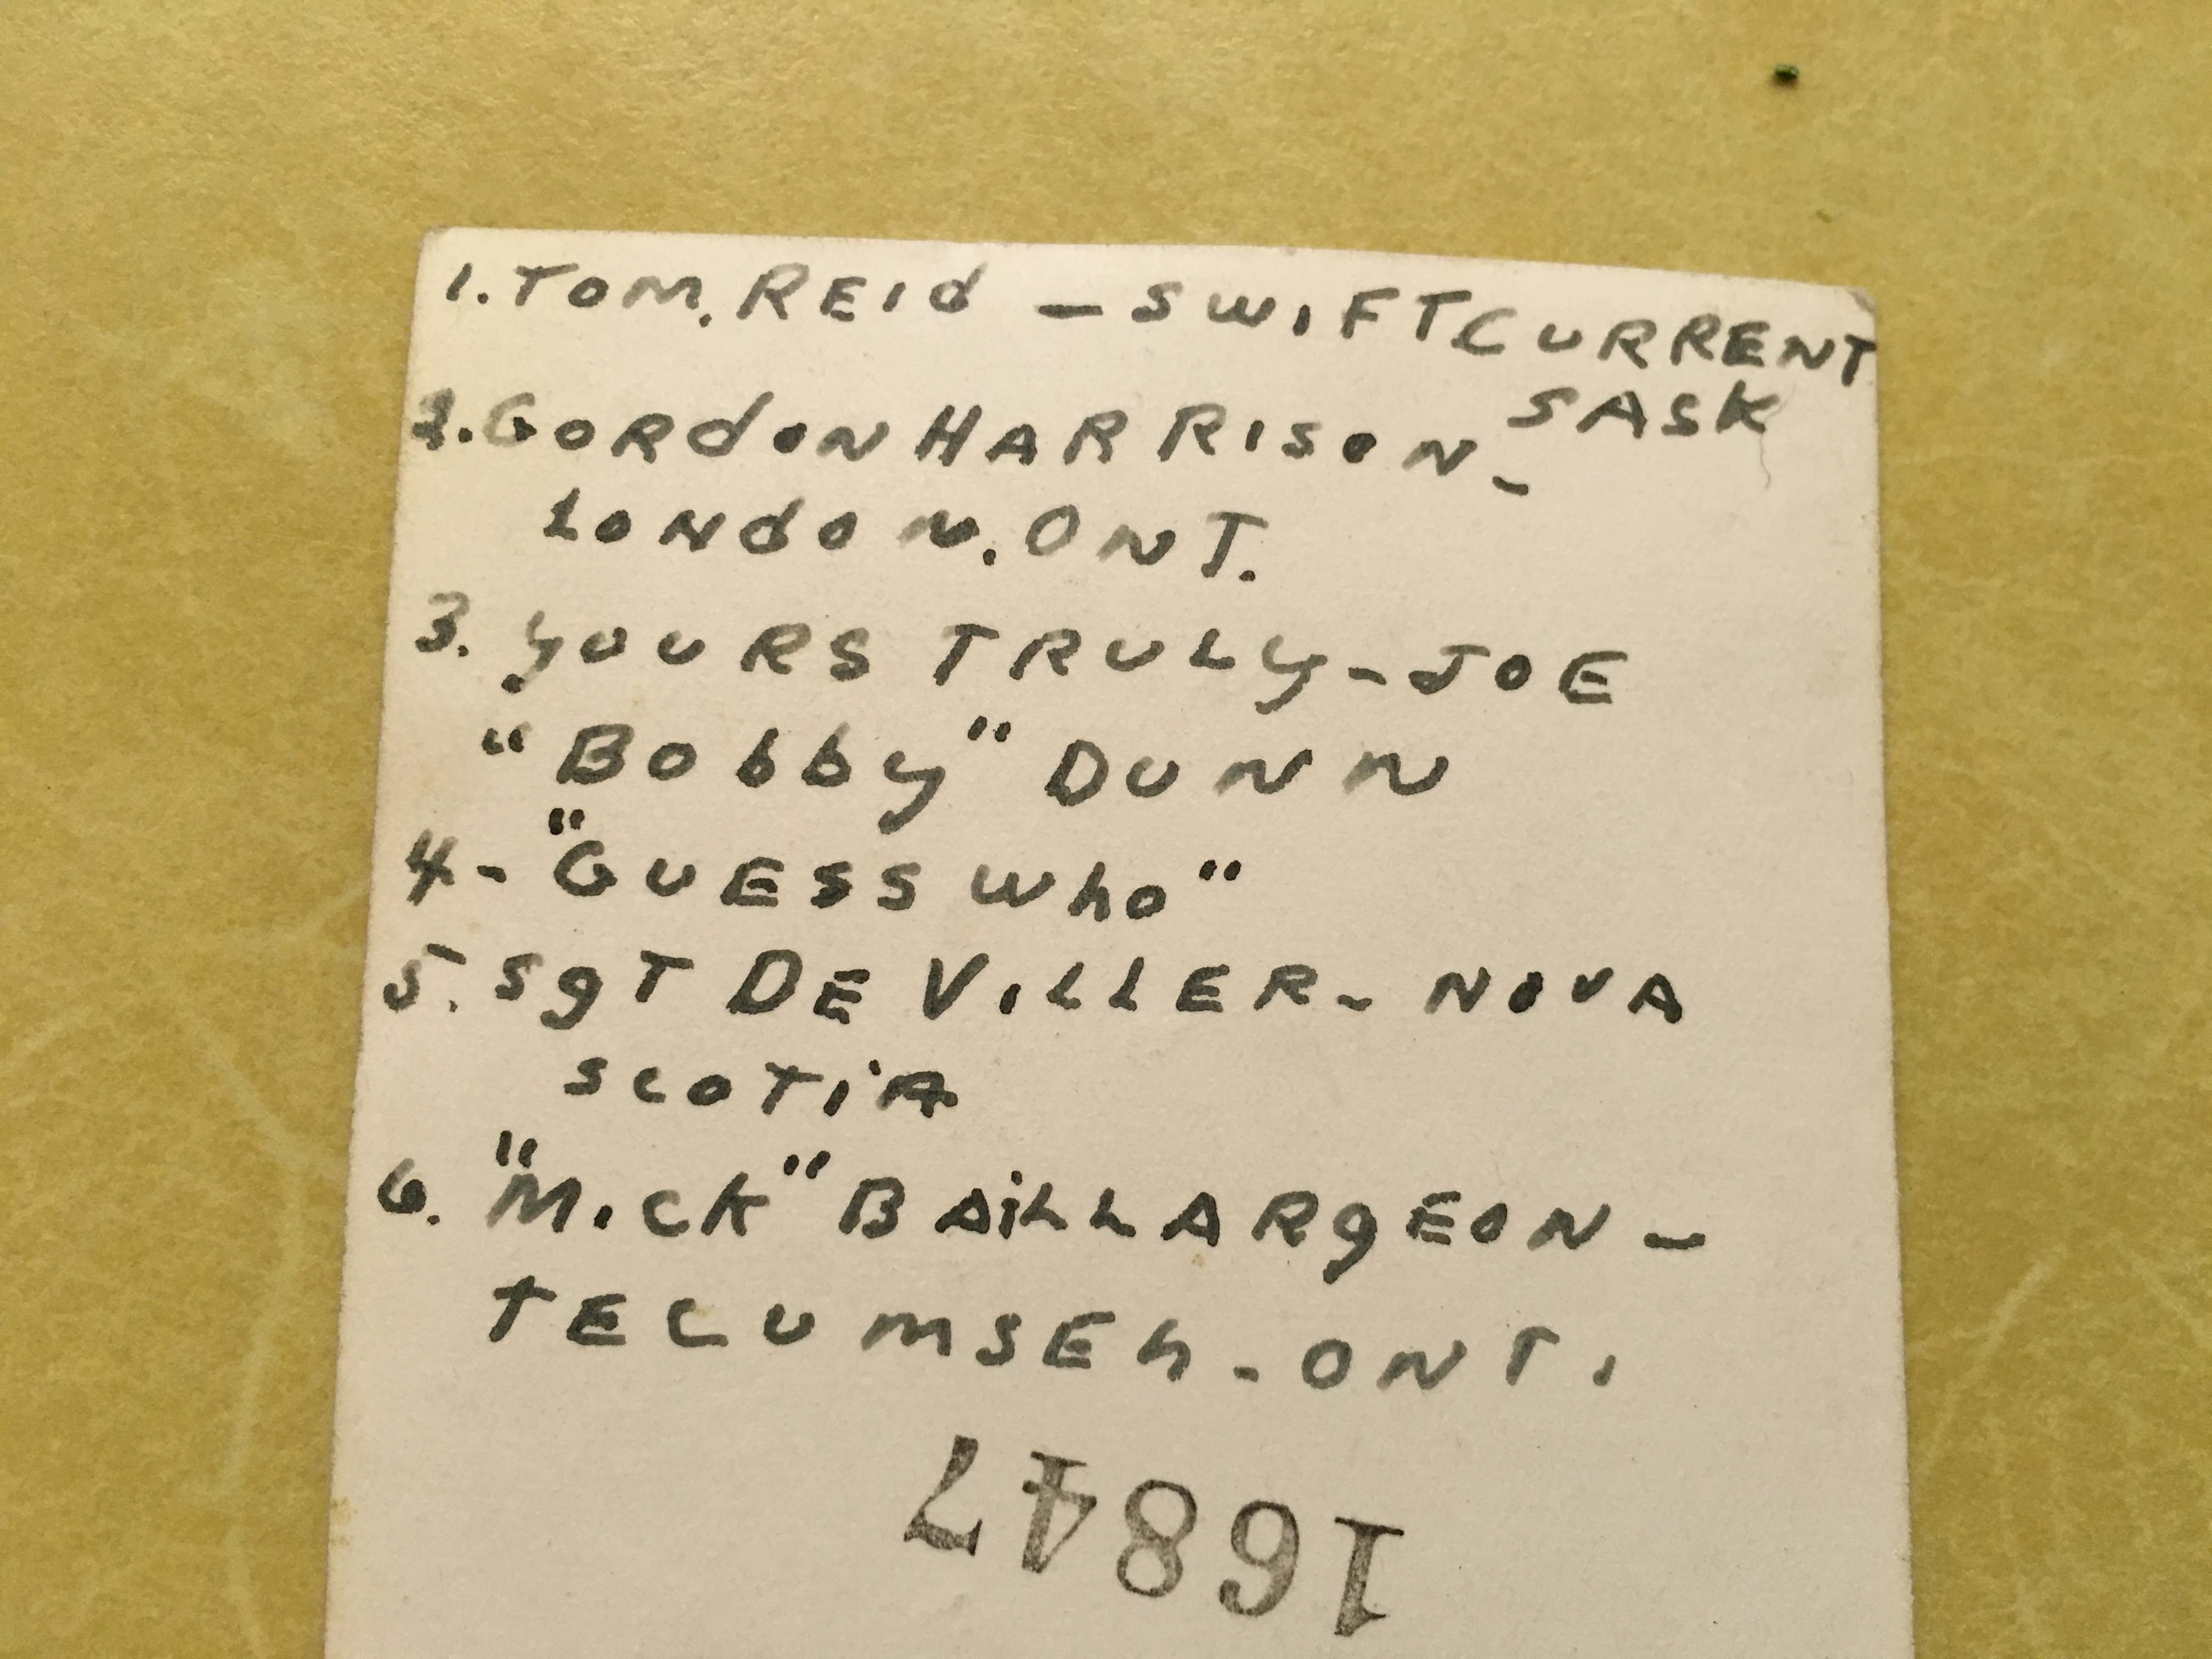 1. TOM. REId - SWIFT CURRENT
SASK
2. GORdON HARRISON -
LONdON. ONT.
3. yOURS TRULy - JOE
"Bobby" DUNN
4 - "GUESS Who"
5. SgT DE VILLER - NOVA
SCOTiA
6. "MICK" BAiLLARgEON -
TECUMSEh - ONT.
16847